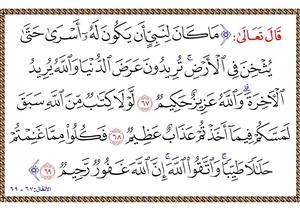 قَالَ تَعَالَىٰ: ﴿مَا كَانَ لِنَبِيٍّ أَن يَكُونَ لَهُۥٓ أَسْرَىٰ حَتَّىٰ
يُثْخِنَ فِى ٱلْأَرْضِ ۚ تُرِيدُونَ عَرَضَ ٱلدُّنْيَا وَٱللَّهُ يُرِيدُ
ٱلْآخِرَةَ ۗ وَٱللَّهُ عَزِيزٌ حَكِيمٌ ٦٧ لَّوْلَا كِتَٰبٌ مِّنَ ٱللَّهِ سَبَقَ
لَمَسَّكُمْ فِيمَآ أَخَذْتُمْ عَذَابٌ عَظِيمٌ ٦٨ فَكُلُوا۟ مِمَّا غَنِمْتُمْ
حَلَٰلًا طَيِّبًا ۚ وَٱتَّقُوا۟ ٱللَّهَ ۚ إِنَّ ٱللَّهَ غَفُورٌ رَّحِيمٌ ٦٩﴾
الأنفال: ٦٧ - ٦٩